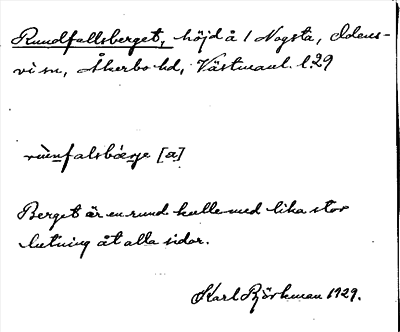 Rundfallsberget, höjd å 1 Nogsta, Odens-
vi sn, Åkerbo hd, Västmanl. l. 29
rùnfalsbærje [a]
Berget är en rund kulle med lika stor
lutning åt alla sidor.
Karl Björkman 1929.